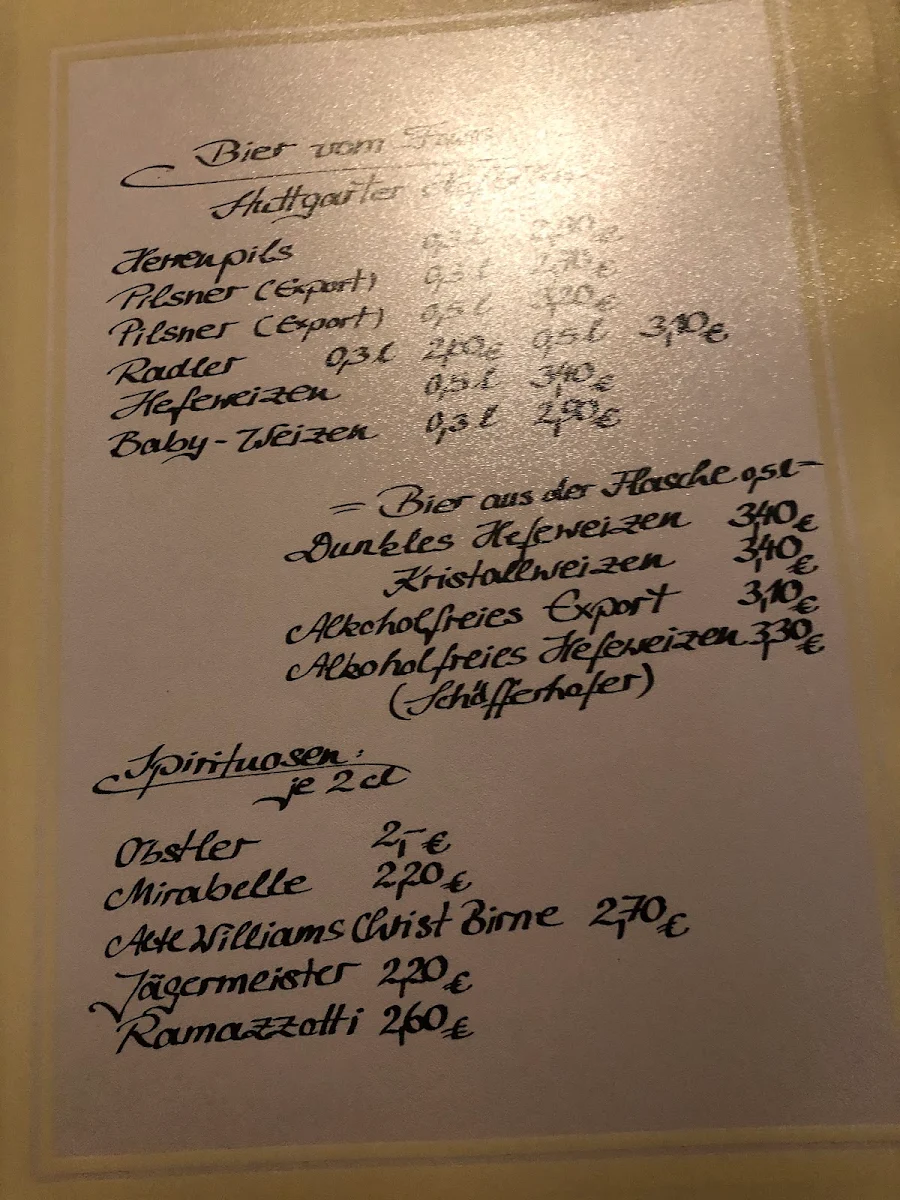 Bier vom Fass
Stuttgarter Hofbräu
Herrenpils 0,3 l 2,90 €
Pilsner (Export) 0,3 l 2,70 €
Pilsner (Export) 0,5 l 3,20 €
Radler 0,3 l 2,60 € 0,5 l 3,10 €
Hefeweizen 0,5 l 3,40 €
Baby-Weizen 0,3 l 2,90 €
= Bier aus der Flasche 0,5 l -
Dunkles Hefeweizen 3,40 €
Kristallweizen 3,40 €
Alkoholfreies Export 3,10 €
Alkoholfreies Hefeweizen 3,30 €
(Schöfferhofer)
Spirituosen:
je 2 cl
Obstler 2,- €
Mirabelle 2,20 €
Alte Williams Christ Birne 2,70 €
Jägermeister 2,20 €
Ramazzotti 2,60 €